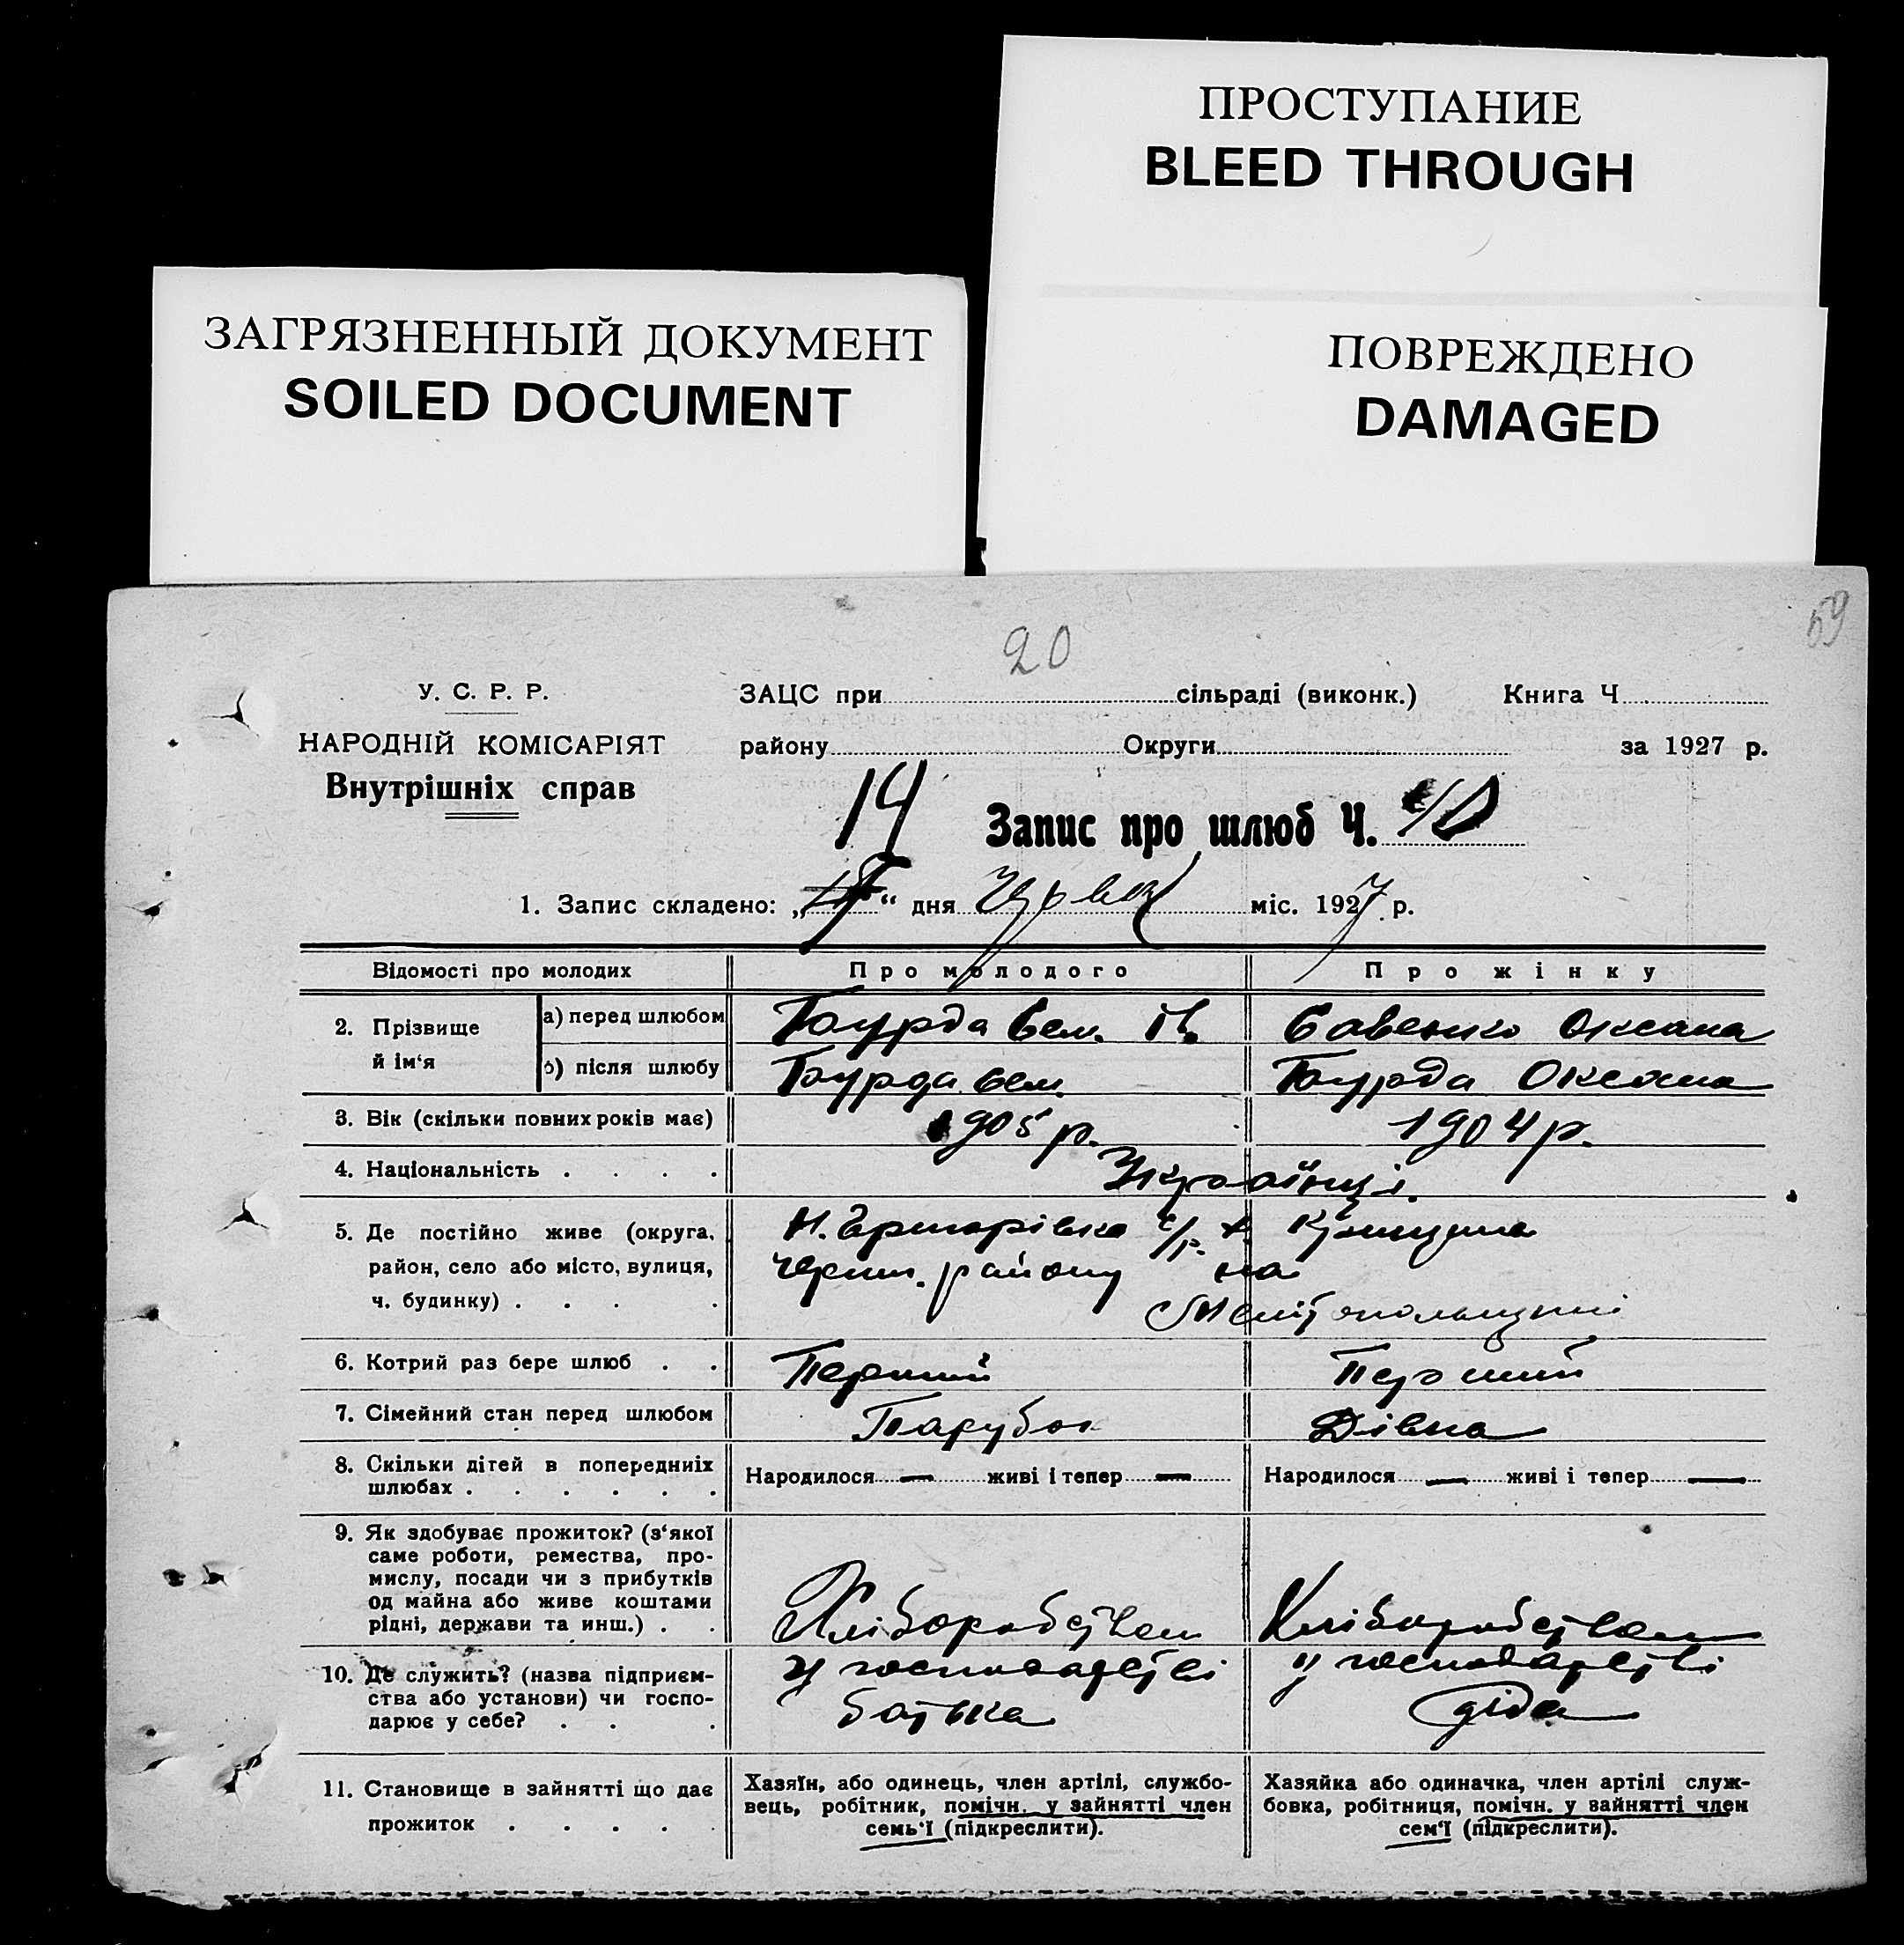 ПРОСТУПАНИЕ
BLEED THROUGH
ЗАГРЯЗНЕННЫЙ ДОКУМЕНТ
SOILED DOCUMENT
ПОВРЕЖДЕНО
DAMAGED
59
20
У. С. Р. Р.
НАРОДНІЙ КОМІСАРІЯТ
Внутрішніх справ
ЗАЦС при сільраді (виконк.) Книга Ч
району Округи за 1927 р.
14 Запис про шлюб Ч. 10
1. Запис складено: „ “ дня Червня міс. 1927 р.
Відомості про молодих Про молодого Про жінку
2. Прізвище й ім‘я
а) перед шлюбом Савенко Оксана
б) після шлюбу Оксана
3. Вік (скільки повних років має) 1905 р. 1904 р.
4. Національність . . . . Українці.
5. Де постійно живе (округа,
район, село або місто, вулиця,
ч. будинку) . . . .
с/р. х.
району на
Мелітопольщині
6. Котрий раз бере шлюб . . Перший Перший
7. Сімейний стан перед шлюбом Парубок Дівка
8. Скільки дітей в попередниіх
шлюбах . . . . . .
Народилося — живі і тепер — Народилося — живі і тепер —
9. Як здобуває прожиток? (з‘якої
саме роботи, ремества, про-
мислу, посади чи з прибутків
од майна або живе коштами
рідні, держави та инш.) . .
Хліборобством Хліборобством
10. Де служить? (назва підприєм-
ства або установи) чи госпо-
дарює у себе? . . .
у господарстві у господарстві
батька діда
11. Становище в зайнятті що дає
прожиток . . . . .
Хазяїн, або одинець, член артілі, службо-
вець, робітник, помічн. у зайнятті член
семь‘ї (підкреслити).
Хазяйка або одиначка, член артілі служ-
бовка, робітниця, помічн. у зайнятті член
сем‘ї (підкреслити).